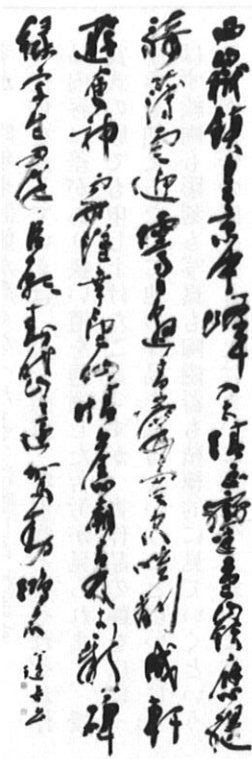 西嶽鎮皇京中峰入太清玉鑾重嶺應緹
騎薄雲迎霽日懸高掌寒空類削成軒
遊會神處漢幸望仙情舊廟青林古新碑
綠字生群臣願封岱還駕勒鴻名